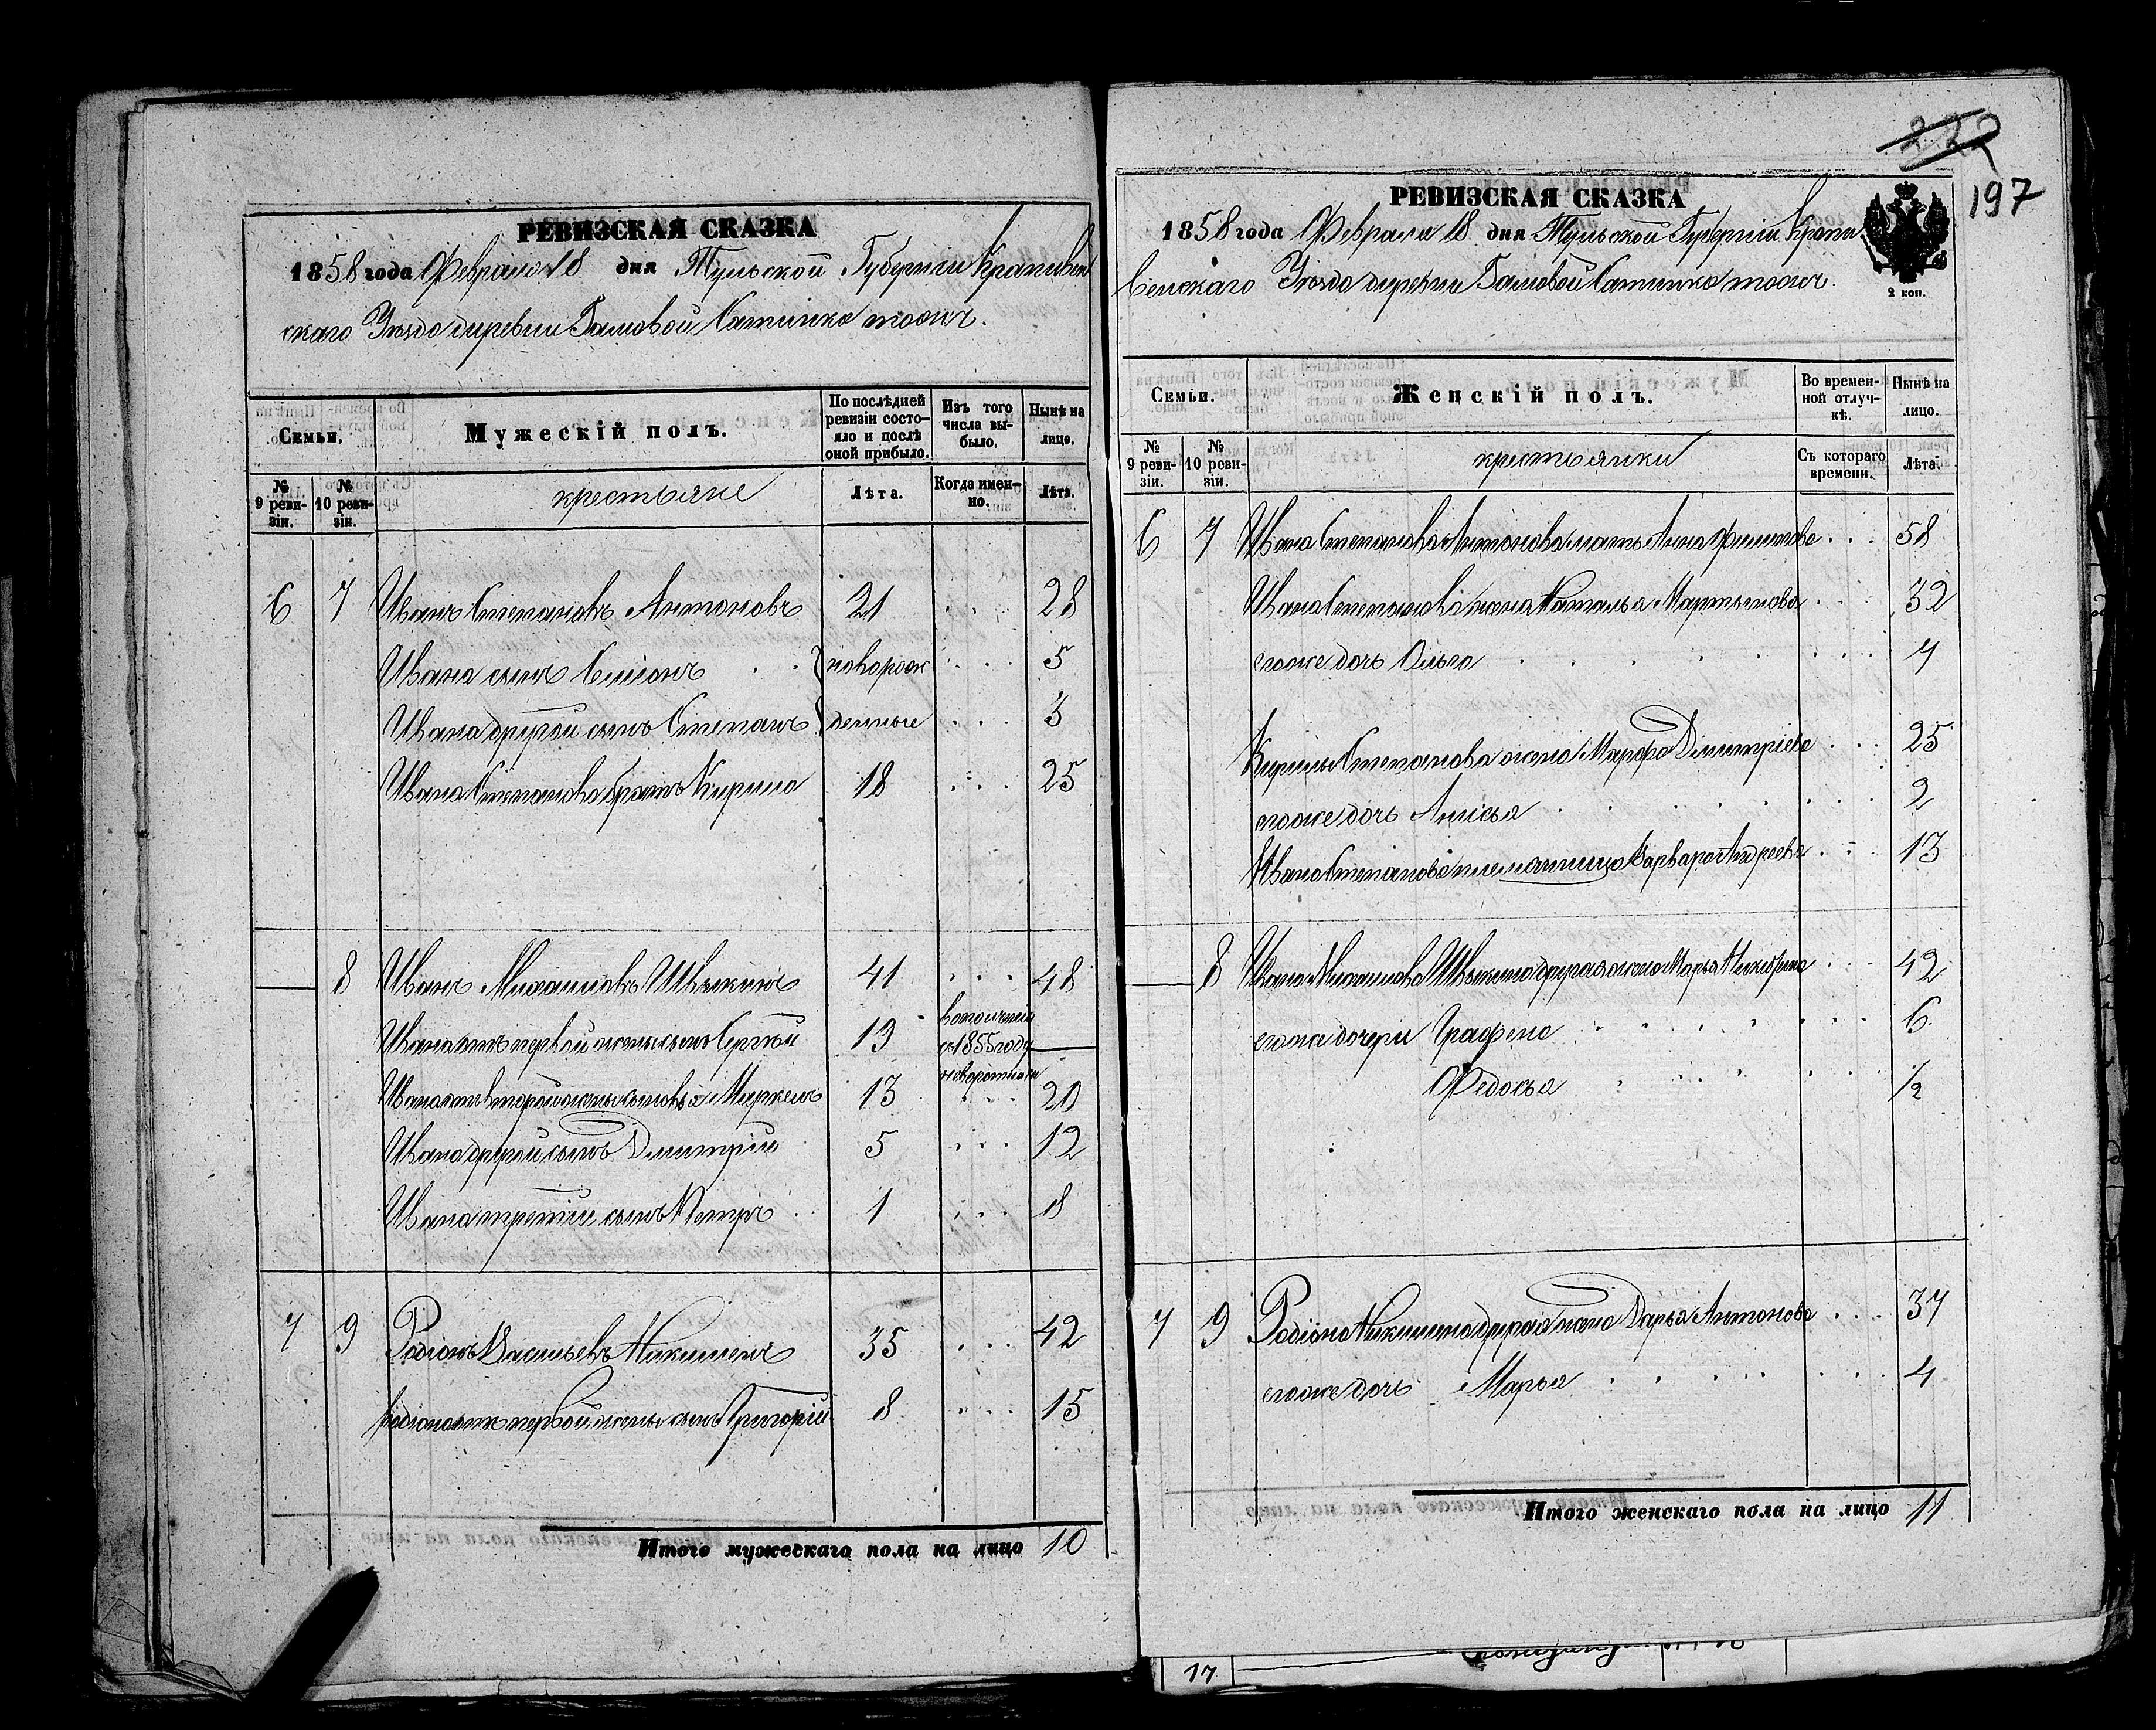 РЕВИЗСКАЯ СКАЗКА
1858 года Февраля 18 дня Тульской Губернiи Крапивен
скаго Уѣзда деревни Гамовой Сатинка тожъ.
Семьи.
Мужескiй полъ.
По послѣдней ревизiи состояло и послѣ оной прибыло.
Изъ того числа выбыло.
Нынѣ на лицо.
№ 9 ревизiи.
№ 10 ревизiи.
крестьяне
Лѣта.
Когда именно.
Лѣта.
6 7 Иванъ Степановъ Антоновъ 21 . . . 28
Ивана сынъ Семіонъ . . новорож . . . 5
Ивана другой сынъ Степанъ денные . . . 3
Ивана Степанова братъ Кирила 18 . . . 25
8 Иванъ Михаиловъ Швыкинъ 41 . . . 48
Ивана отъ первой жены сынъ Сергѣй 19 въ ополченіи съ 1855 году неворотился
Ивана отъ второй жены сыновья Маркелъ 13 . . . 20
Ивана другой сынъ Дмитрій 5 . . . 12
Ивана третій сынъ Петръ 1 . . . 8
7 9 Родіонъ Васильевъ Никишенъ 35 . . . 42
Родіона отъ первой жены сынъ Григорій 8 . . . 15
Итого мужескаго пола на лицо 10
222
197
РЕВИЗСКАЯ СКАЗКА
1858 года Февраля 18 дня Тульской Губерніи Крапи
венскаго Уѣзда деревни Гамовой Сатинка тожъ.
2 коп.
Семьи.
Женскiй полъ.
Во временной отлучкѣ.
Нынѣ на лицо.
№ 9 ревизiи.
№ 10 ревизiи.
крестьянки
Съ котораго времени.
Лѣта.
6 7 Ивана Степанова Антонова мать Анна Филипова . . . 58
Ивана Степанова жена Наталья Мартынова . . . 32
егоже дочь Ольга . . . 7
Кирилы Степанова жена Марфа Дмитріева . . . 25
егоже дочь Анисья . . . 2
Ивана Степанова племянница Варвара Андреева . . . 13
8 Ивана Михаилова Швыкина другая жена Марья Никифрова . . . 42
егоже дочери Графена . . . 6
Федосья . . . 1/2
7 9 Родіона Никишина другая жена Дарья Антонова . . . 37
егоже дочь Марья . . . 4
Итого женскаго пола на лицо 11
17